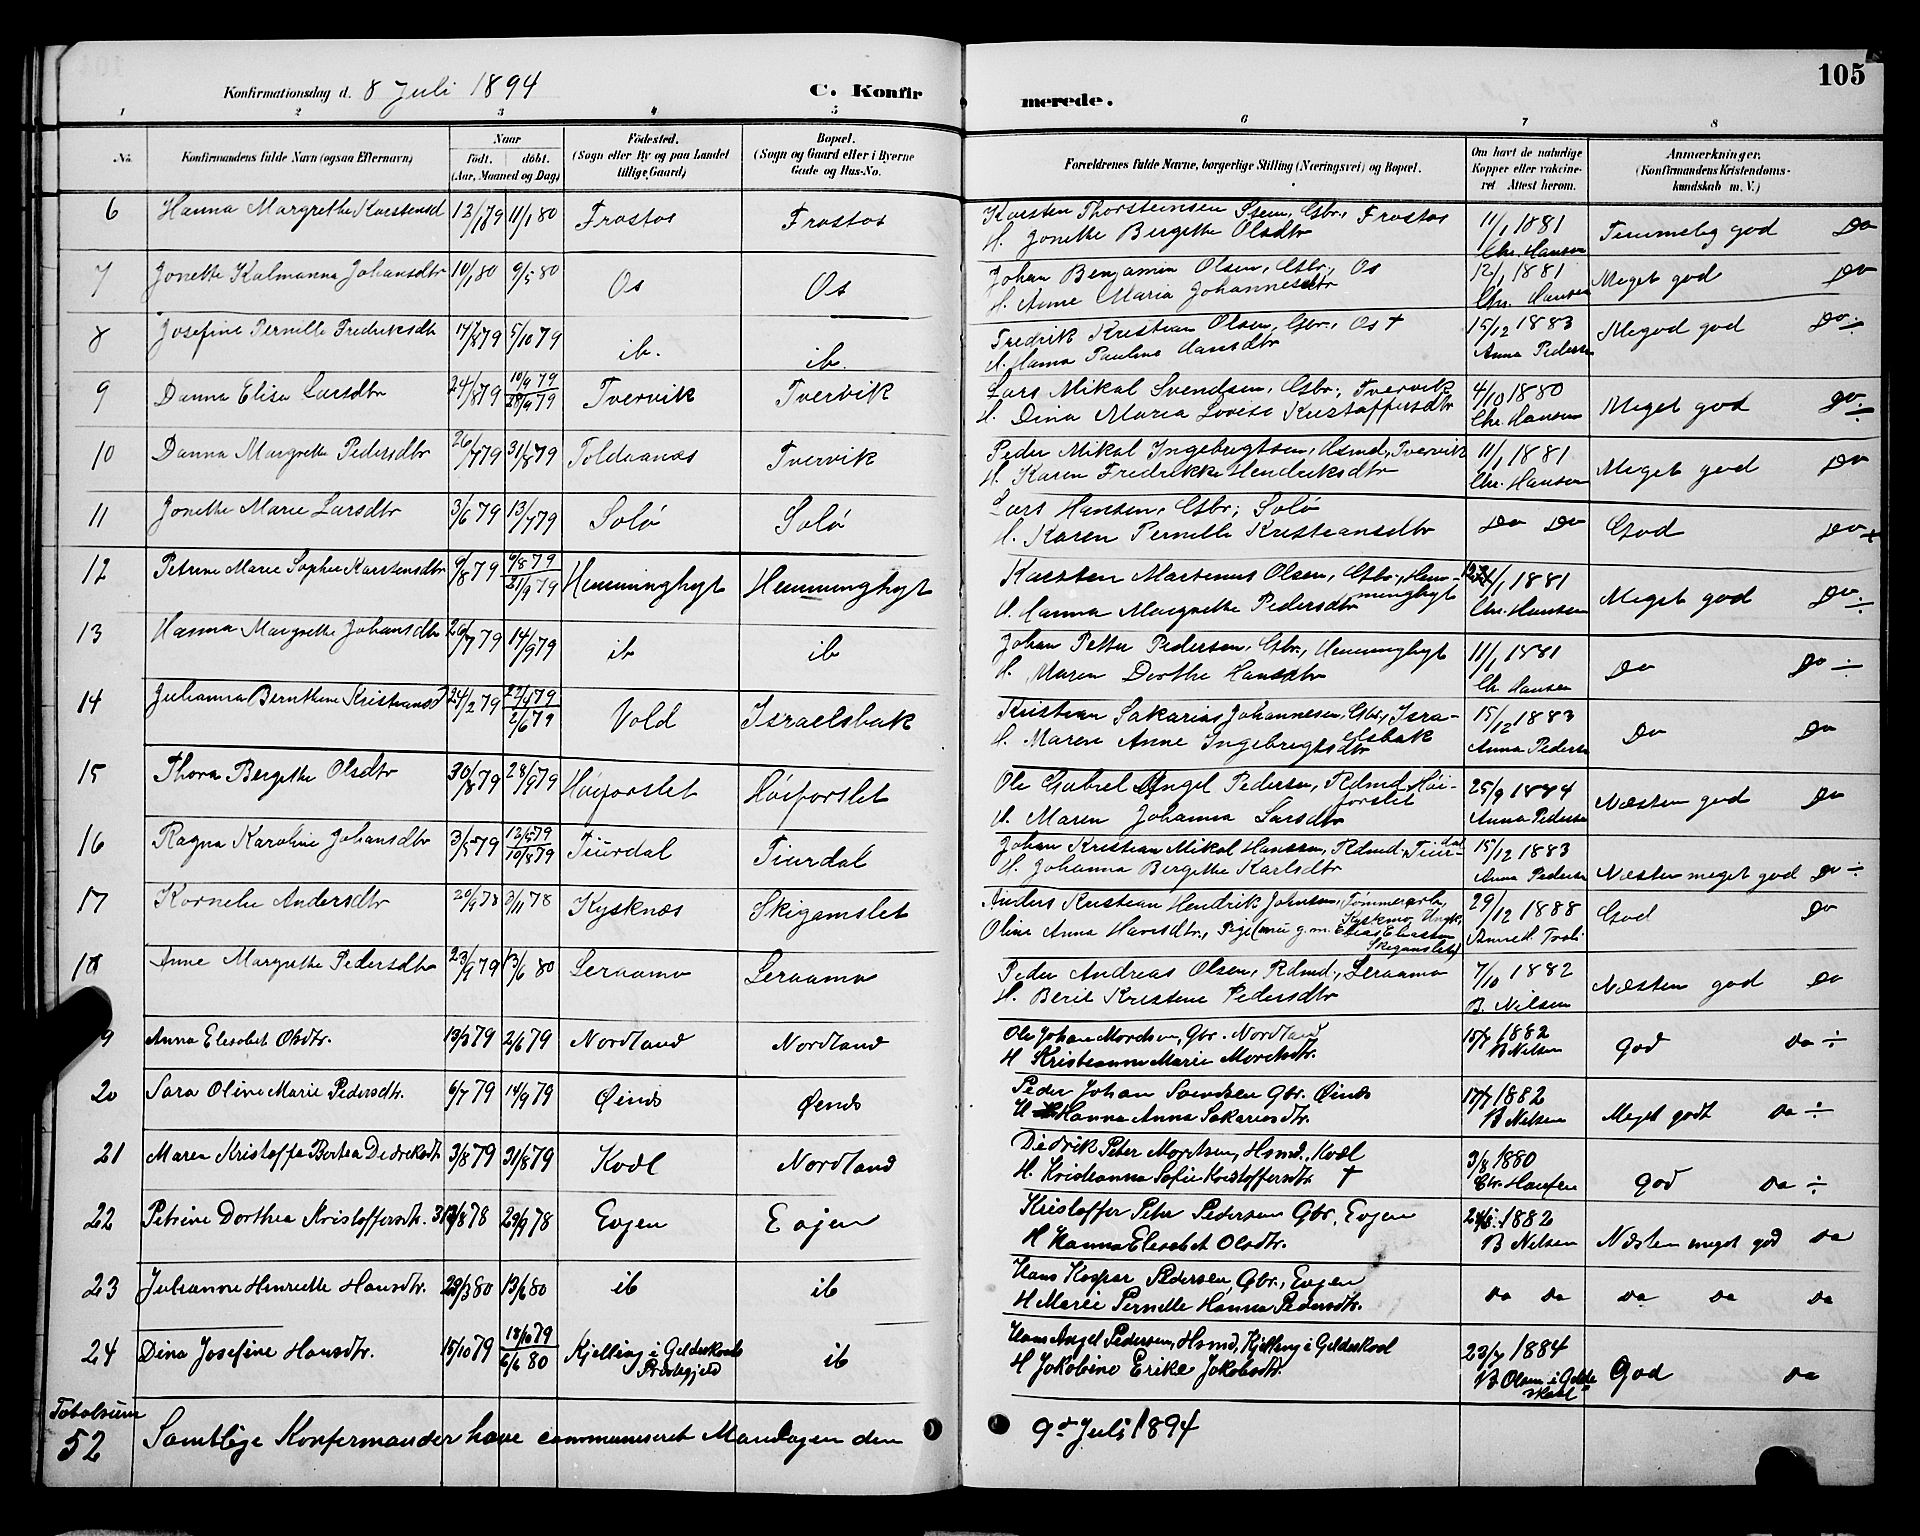 Konfirmationsdag d. 8 Juli 1894
C. Konfir
merede.
105
1 2 3 4 5 6 7 8
No. Konfirmandens fulde Navn (ogsaa Efternavn) Naar født. døbt. (Aar, Maaned og Dag) Fødested. (Sogn eller By og paa Landet tillige Gaard) Bopæl. (Sogn og Gaard eller i Byerne Gade og Hus-No. Forældrenes fulde Navne, borgerlige Stilling (Næringsvei) og Bopæl. Om havt de naturlige Kopper eller vakcineret Attest herom. Anmærkninger. (Konfirmandens Kristendomskundskab m. V.)
6 Hanna Margrethe Karstensd 12/1 79 11/1 80 Frostos Frostos Karsten Thorsteinsen Steen, Gbr., Frostos 11/1 1881 Temmelig god Do
H. Jonette Bergitte Olsdtr Chr. Hansen
7 Jonette Kalmanna Johansdtr 10/1 80 9/5 80 Os Os Johan Benjamin Olsen, Gbr., Os 12/1 1881 Meget god Do
H. Anne Maria Johannesdtr Chr. Hansen
8 Josefine Pernille Frederiksdtr 14/8 79 5/10 79 ib. ib. Fredrik Kristian Olsen, Gbr., Os † 15/12 1883 Megod god Do ÷
H. Hanna Pauline Hansdtr Anna Pedersen
9 Danna Elise Larsdtr 24/8 79 10/9 79 28/9 79 Tvervik Tvervik Lars Mikal Svendsen, Gbr., Tvervik 4/10 1880 Meget god Do ÷
H. Dina Maria Lovise Kristoffersdtr Chr. Hansen
10 Danna Margrethe Pedersdtr 26/7 79 31/8 79 Toldaanes Tvervik Peder Mikal Ingebrigtsen, Hsmd, Tvervik 11/1 1881 Meget god Do
H. Karen Fredrikke Hendriksdtr Chr. Hansen
11 Jonette Marie Larsdtr 3/6 79 13/7 79 Solø Solø Lars Hansen, Gbr, Solø Do Do God Do +
H. Karen Pernille Kristiansdtr
12 Petrine Marie Sophie Karstensdtr 9/8 79 9/8 79 21/9 79 Hemminghyt Hemminghyt Karsten Martenus Olsen, Gbr., Hemminghyt /1 1881 Meget god Do ÷
H. Hanna Margrethe Pedersdtr Chr. Hansen
13 Hanna Margrethe Johansdtr 26/7 79 14/9 79 ib ib Johan Petter Pedersen, Gbr., Hemminghyt 11/1 1881 Do Do ÷
H. Maren Dorthe Hansdtr Chr. Hansen
14 Julianna Bernthine Kristiansd 24/2 79 22/4 79 2/6 79 Vold Israelsbak Kristian Sakarias Johannesen, Gbr., Israelsbak 15/12 1883 Do Do
H. Maren Anne Ingebrigtsdtr Anna Pedersen
15 Thora Bergitte Olsdtr 30/8 79 28/9 79 Høiforslet Høiforslet Ole Gabriel Angel Pedersen, Rdmd Høiforslet 25/9 1884 Næsten god Do
H. Maren Johanna Larsdtr Anna Pedersen
16 Ragna Karoline Johansdtr 3/5 79 12/5 79 10/8 79 Tiurdal Tiurdal Johan Kristian Mikal Hanssen, Rdmd., Tiurdal 15/12 1883 Næsten meget god Do ÷
H. Johanna Bergitte Karlsdtr Anna Pedersen
17 Kornelie Andersdtr 20/9 78 3/11 78 Kysknæs Skigamslet Anders Kristian Hendrik Johnsen, Tømmerarb., Kyskmo, Ungk. 29/12 1888 God Do
Oline Anna Hansdtr., Pige (nu g. m. Elias Eliassen Skigamslet)
18 Anne Margrethe Pedersdtr 23/9 79 13/6 80 Leraamo Leraamo Peder Andreas Olsen, Rdmd., Leraamo 7/10 1882 Næsten god Do
H. Berit Kristine Pedersdtr B. Nilsen
9 Anna Elesabet Olsdtr. 13/3 79 2/6 79 Nordland Nordland Ole Johan Mordsen, Gbr. Nordland 15/7 1882 God Do ÷
H Kristianna Marie Mordsdtr. B Nilsen
20 Sara Oline Marie Pedersdtr. 6/7 79 14/9 79 Øines Øenes Peder Johan Svendsen Gbr. Øines 17/7 1882 Meget godt Do ÷
H Hanna Anna Sakariasdtr. B Nilsen
21 Maren Kristoffa Bertea Dedreksdtr 3/8 79 31/8 79 Kodl Nordland Didrik Peter Mortsen, Hsmd, Kodl 3/8 1880 God Do ÷
H. Kristianna Sofie Kristoffersdtr. † Chr. Hansen
22 Petrine Dorthea Kristoffersdtr. 31/8 78 29/9 78 Evjen Evjen Kristoffer Peter Pedersen Gbr, Evjen 1882 Næsten meget god Do
H Hanna Elesabet Olsdtr. B Nilsen
23 Julianne Henriette Hansdtr. 29/3 80 13/6 80 ib ib Hans Kaspar Pedersen Gbr., Evjen do do do do do
H Marie Pernelle Hanna Pedersdtr.
24 Dina Josefine Hansdtr. 15/10 79 18/10 79 6/6 80 Kjelling i Gildeskaals Præstegjeld ib Hans Angel Pedersen, Hsmd, Kjelling i Gildeskaal 23/7 1884 God Do
H Jakobine Erike Jakobsdtr. B Olsen i Gildeskaal
Totalsum
52 Samtlige Konfirmander have communiseret Mandagen den 9de Juli 1894